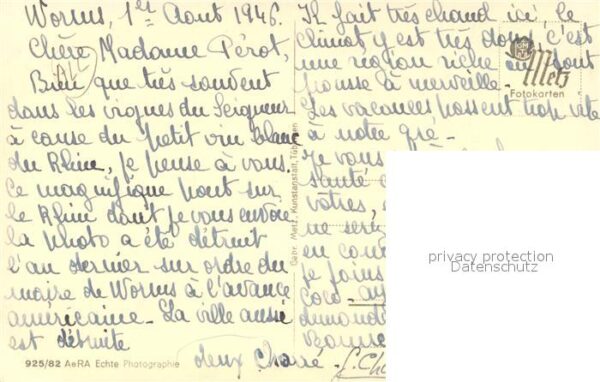 Worms, 1er Août 1946.
Chère Madame Pérot,
Bien que très souvent
dans les vignes du Seigneur
à cause du petit vin blanc
du Rhin, je pense à vous.
Ce magnifique pont sur
le Rhin dont je vous envoie
la photo a été détruit
l'an dernier sur ordre du
maire de Worms à l'avance
américaine. La ville aussi
est détruite
925/82 AeRA Echte Photographie
Gebr. Metz, Kunstanstalt, Tübingen
Il fait très chaud ici, le
climat y est très doux c'est
une région riche où tout
pousse à merveille.
Les vacances passent trop vite
à notre gré.
Je vous
santé
vôtres,
ne
en
je joins
deux
Metz
Fotokarten
privacy protection
Datenschutz